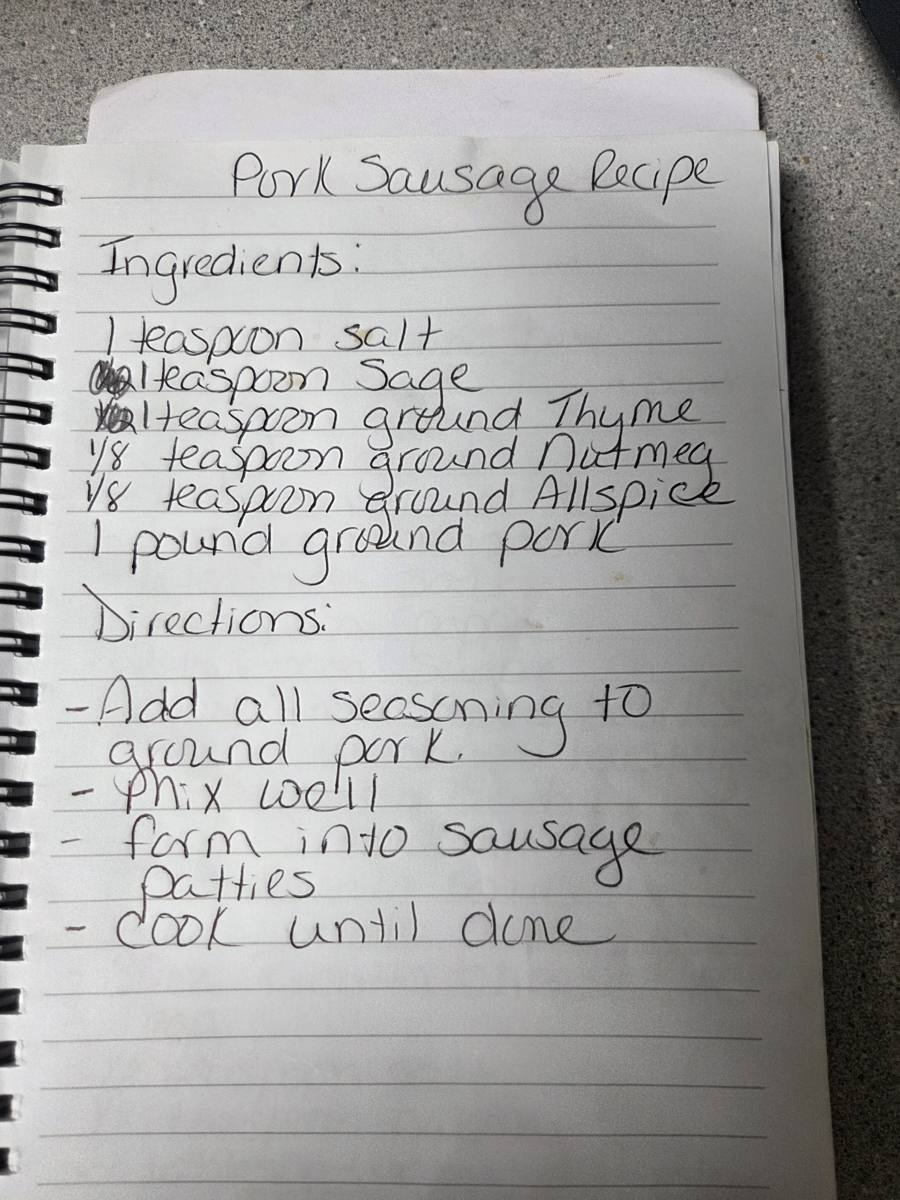 Pork Sausage Recipe
Ingredients:
1 teaspoon salt
1 teaspoon Sage
1 teaspoon ground Thyme
1/8 teaspoon ground Nutmeg
1/8 teaspoon ground Allspice
1 pound ground pork
Directions:
- Add all seasoning to
ground pork.
- Mix well
- form into sausage
patties
- Cook until done